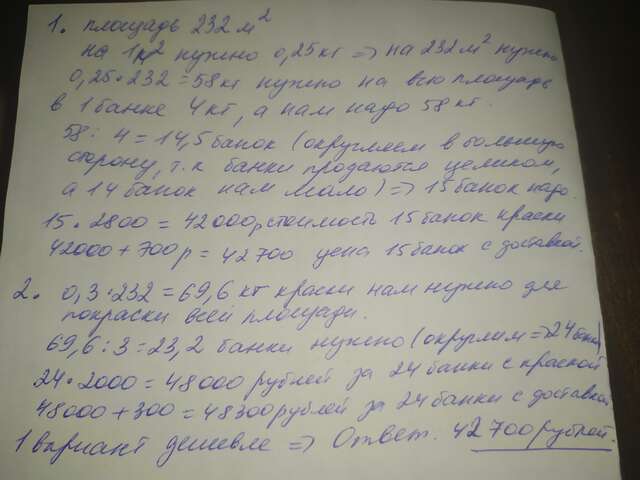 1. площадь 232 м²
на 1м² нужно 0,25 кг => на 232 м² нужно
0,25 · 232 = 58 кг нужно на всю площадь
в 1 банке 4 кг, а нам надо 58 кг.
58 : 4 = 14,5 банок (округляем в большую
сторону, т.к банки продаются целиком,
а 14 банок нам мало) => 15 банок надо.
15 · 2800 = 42000р стоимость 15 банок краски
42000 + 700 р = 42 700 цена 15 банок с доставкой.
2. 0,3 · 232 = 69,6 кг краски нам нужно для
покраски всей площади.
69,6 : 3 = 23,2 банки нужно (округлим => 24 банки)
24 · 2000 = 48000 рублей за 24 банки с краской
48000 + 300 = 48300 рублей за 24 банки с доставкой
1 вариант дешевле => Ответ. 42 700 рублей.